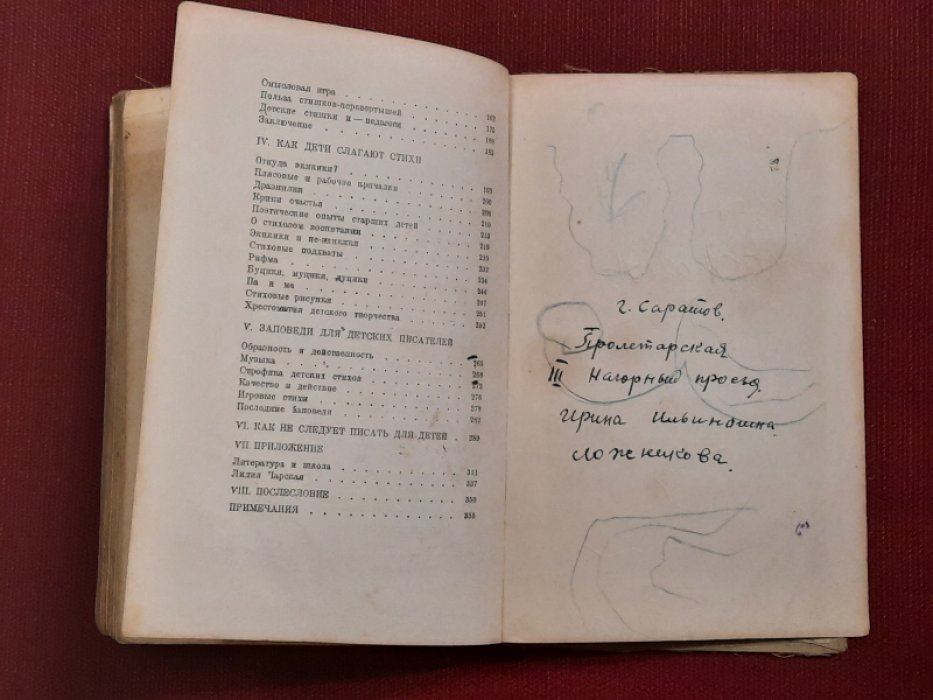 Смысловая игра
Польза стишков-перевертышей 162
Детские стишки и — педагоги 175
Заключение 185
IV. КАК ДЕТИ СЛАГАЮТ СТИХИ
Откуда экикики?
Плясовые и рабочие кричалки
Дразнилки
Крики счастья
Поэтические опыты старших детей 210
О стиховом воспитании 213
Экикики и не-экикики 219
Стиховые подхваты
Рифма 232
Буцики, муцики, дуцики 234
Па и ма 244
Стиховые рисунки 247
Хрестоматия детского творчества 251
252
V. ЗАПОВЕДИ ДЛЯ ДЕТСКИХ ПИСАТЕЛЕЙ
Образность и действенность 265
Музыка 268
Строфика детских стихов 272
Качество и действие 276
Игровые стихи 279
Последние заповеди 282
VI. КАК НЕ СЛЕДУЕТ ПИСАТЬ ДЛЯ ДЕТЕЙ 289
VII. ПРИЛОЖЕНИЕ
Литература и школа 311
Лидия Чарская 337
VIII. ПОСЛЕСЛОВИЕ 350
ПРИМЕЧАНИЯ 355
г. Саратов.
Пролетарская
III Нагорный проезд
Ирина Ильинишна
Ложникова.